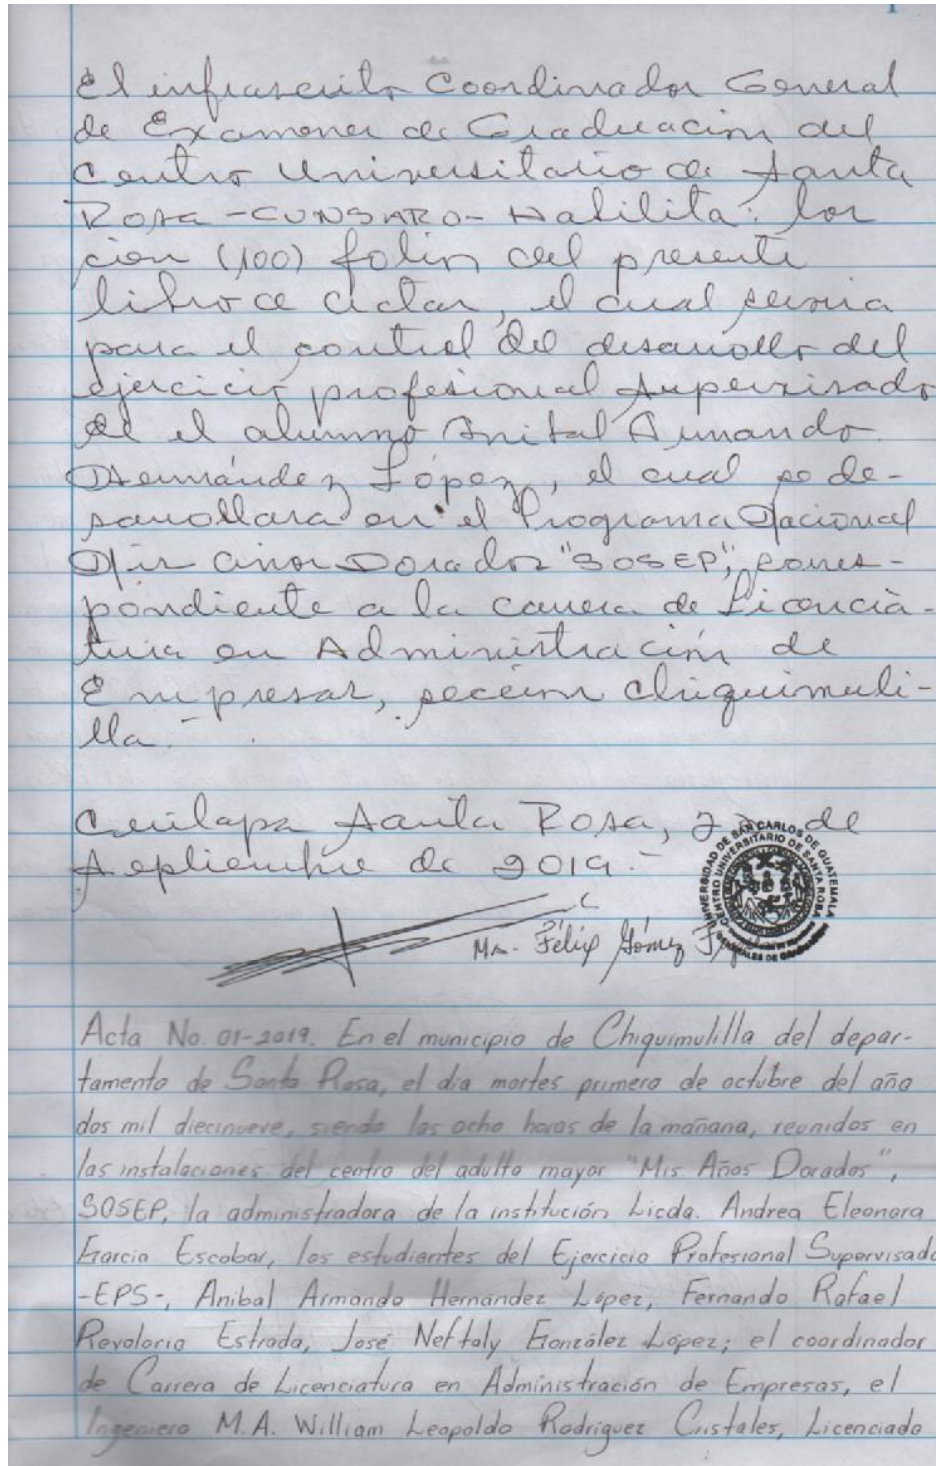 1
El infrascrito Coordinador General
de Examenes de Graduación del
Centro Universitario de Santa
Rosa -CUNSARO- Habilita: los
cien (100) folios del presente
libro de actas, el cual servira
para el control del desarrollo del
ejercicio profesional supervisado
de el alumno Anibal Armando
Hernández López, el cual se de-
sarrollara en el Programa Nacional
Mis Años Dorados "SOSEP", corres-
pondiente a la carrera de Licencia-
tura en Administración de
Empresas, sección Chiquimuli-
lla.
Cuilapa Santa Rosa, de
septiembre de 2019.-
UNIVERSIDAD DE SAN CARLOS DE GUATEMALA
CENTRO UNIVERSITARIO DE SANTA ROSA
Ma. Félix Gómez
Acta No. 01-2019. En el municipio de Chiquimulilla del depar-
tamento de Santa Rosa, el dia martes primero de octubre del año
dos mil diecinueve, siendo las ocho horas de la mañana, reunidos en
las instalaciones del centro del adulto mayor "Mis Años Dorados",
SOSEP, la administradora de la institución Licda. Andrea Eleonora
Garcia Escobar, los estudiantes del Ejercicio Profesional Supervisado
-EPS-, Anibal Armando Hernández López, Fernando Rafael
Revolorio Estrada, José Neftaly González López; el coordinador
de Carrera de Licenciatura en Administración de Empresas, el
Ingeniero M.A. William Leopoldo Rodríguez Cristales, Licenciado